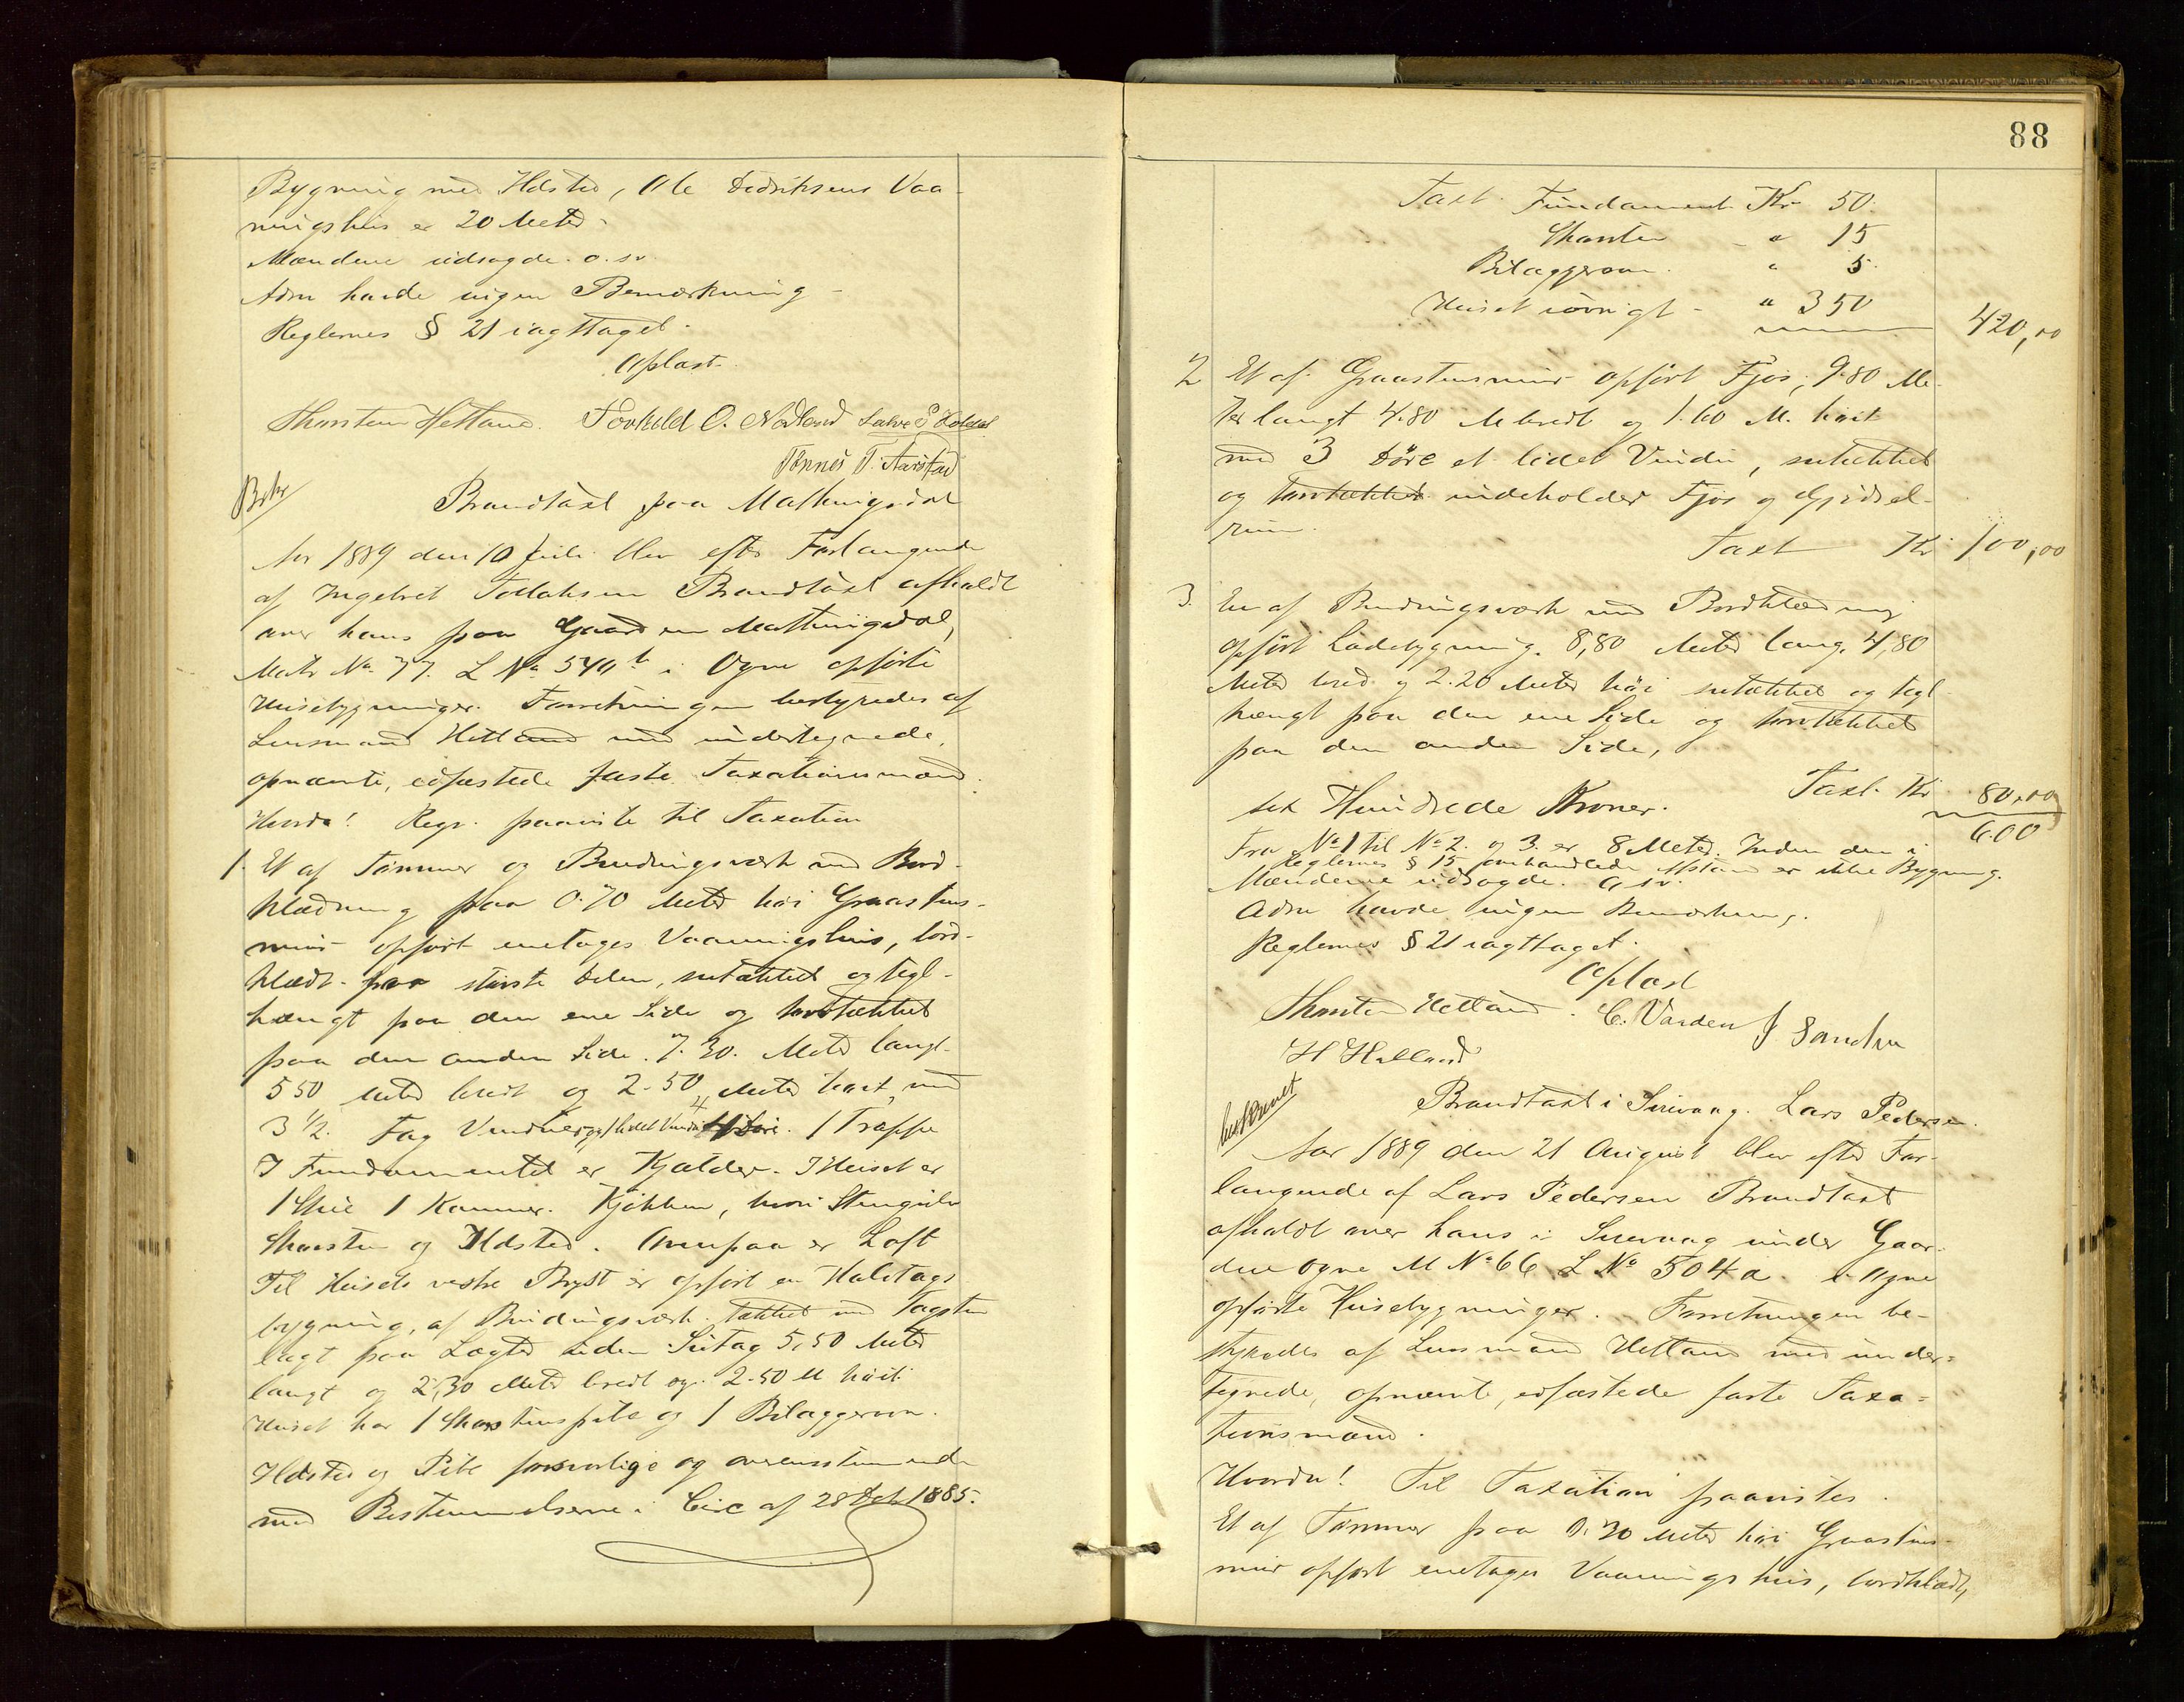 Bygning med Ildsted, Ole Fredriksens Vaa-
ningshus er 20 Meter.
Mændene udsagde o. s. v.
Adm havde ingen Bemærkning -
Reglernes § 21 iagttaget.
Oplæst.
Thorsten Hetland. Torkild O. Nodland
Tønnes T. Aarstad
Brandtaxt paa Matningsdal
Aar 1889 den 10 Juli blev efter Forlangende
af Ingebret Tollaksen Brandtaxt afholdt
over hans paa Gaarden Matningsdal,
Matr No. 77. L No. 540 b i Ogne opførte
Husebygninger. Forretningen bestyredes af
Lensmand Hetland med undertegnede,
opnævnte, edfæstede faste Taxationsmænd.
Hvorda! Reqv. paaviste til Taxation
1. Et af Tømmer og Bindingsværk med Bord-
klædning paa 0.70 Meter høi Graastens-
mur opført enetages Vaaningshus, bord-
klædt paa største Delen, sutækket og tegl-
hængt paa den ene Side og torvtækket
paa den anden Side. 7.30. Meter langt
550 Meter bredt og 2.50 Meter høit, med
3 1/2. Fag Vinduer og 1 lidet Vindu 1 Trappe
I Fundamentet er Kjælder. I Huset er
1 Stue 1 Kammer. Kjøkken, hvori Stengulv
Skorsten og Ildsted. Ovenpaa er Loft
Til Husets vestre Bryst er opført en Halvtags
bygning, af Bindingsværk tækket med Tagsten
lagt paa Lægter uden Sutag 5,50 Meter
langt og 2,30 Meter bredt og 2.50 M høit.
Huset har 1 Skorstenspibe og 1 Bilæggerovn.
Ildsted og Pibe forsvarlige og overensstemmende
med Bestemmelserne i Circ af 28 Oct 1885.
88
Taxt. Fundament Kr 50.
Skorsten - " 15
Bilæggerovn. " 5.
Huset iøvrigt - " 350
420,00
2 Et af Graastensmur opført Fjøs, 9.80 Me-
ter langt 4.80 M bredt og 1.60 M. høit
med 3 Døre et lidet Vindu, sutækket
og torvtækket indeholder Fjøs og Gjødsel-
rum.
Taxt Kr 100,00
3. En af Bindingsværk med Bordklædning
opført Ladebygning. 8,80 Meter lang, 4,80
Meter bred og 2.20 Meter høi sutækket og tegl
hængt paa den ene Side og torvtækket
paa den anden Side,
Taxt. Kr 80,00
sex Hundrede Kroner.
600
Fra No 1 til No 2. og 3. er 8 Meter. Inden den i
Reglernes § 15 omhandlede Afstand er ikke Bygning.
Mændene udsagde. o. s. v.
Adm havde ingen Bemærkning.
Reglernes § 21 iagttaget.
Oplæst
Thorsten Hetland. C. Varden
H Helland
Brandtaxt i Sirevaag. Lars Pedersen.
Aar 1889 den 21 August blev efter For-
langende af Lars Pedersen Brandtaxt
afholdt over hans i Sirevaag under Gaar-
den Ogne M No 66 L No 504 a. i Ogne
opførte Husebygninger. Forretningen be-
styredes af Lensmand Hetland med under-
tegnede, opnævnte, edfæstede faste Taxa-
tionsmænd.
Hvorda! Til Taxation paavistes.
Et af Tømmer paa 0.30 Meter høi Graastens-
mur opført enetages Vaaningshus, bordklædt,